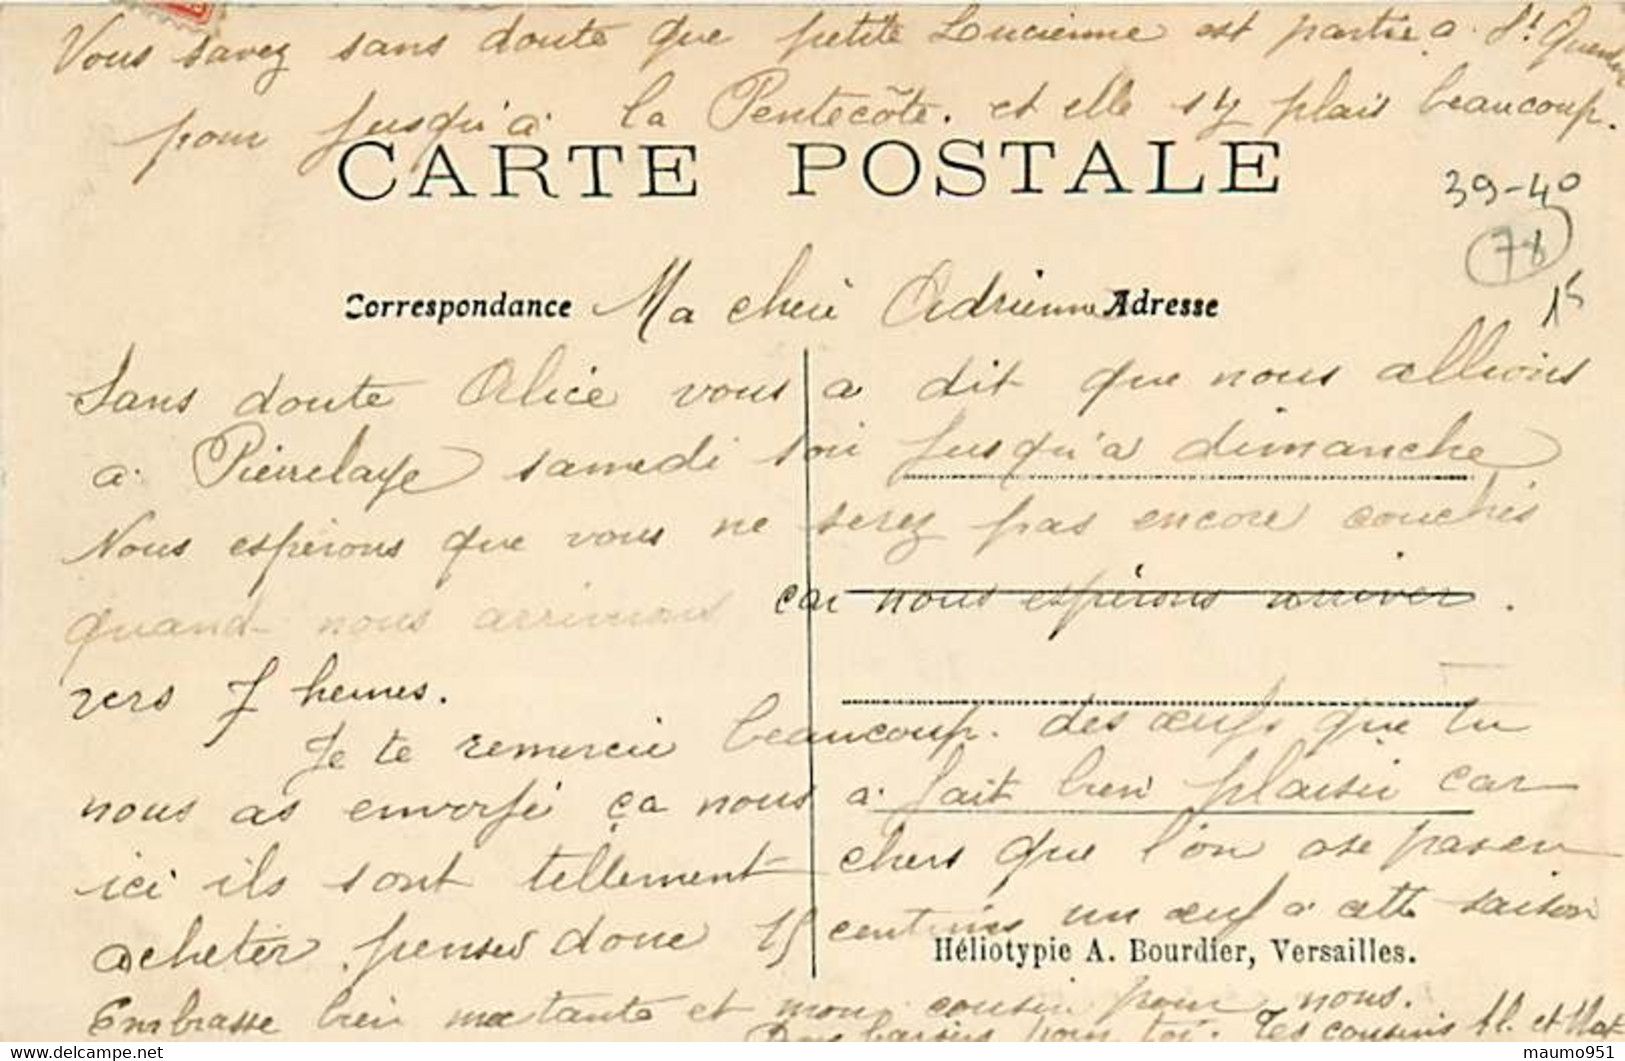 Vous savez sans doute que petite Lucienne est partie a St Quentin
pour jusqu'à la Pentecôte. et elle s'y plais beaucoup.
CARTE POSTALE
39-40
78
15
Correspondance Ma cheri Adrienne Adresse
Sans doute Alice vous a dit que nous allions
a Pierrelaye samedi soir jusqu'a dimanche
Nous espérons que vous ne serez pas encore couchés
quand nous arriverons car nous espérons arriver.
vers 7 heures.
Je te remercie beaucoup des œufs que tu
nous as envoyé ça nous a fait bien plaisir car
ici ils sont tellement chers que l'on ose pas en
acheter penses donc 15 centimes un œuf a cette saison
Héliotypie A. Bourdier, Versailles.
Embrasse bien ma tante et mon cousin pour nous.
baisers pour toi. Tes cousins Al. et
maumo951